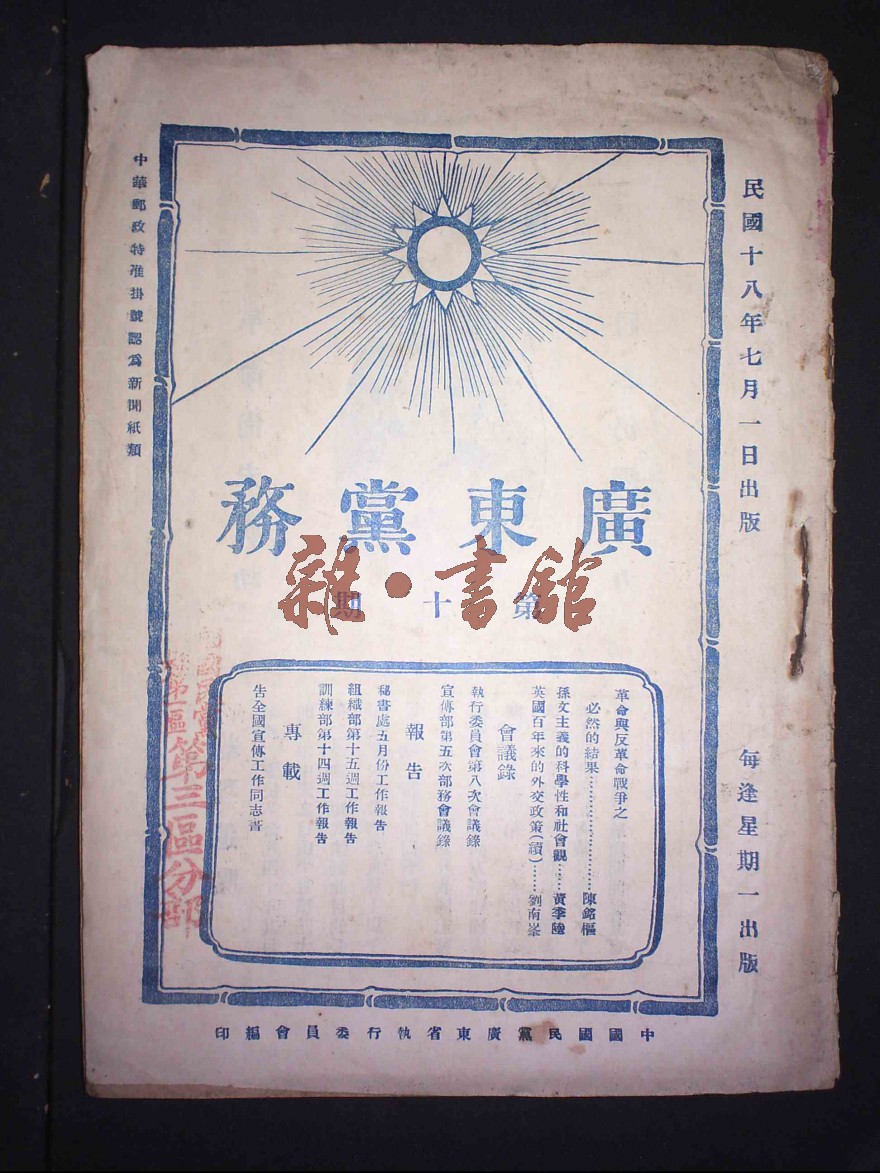 民國十八年七月一日出版
每逢星期一出版
廣東黨務
第十期
雜·書館
革命與反革命戰爭之
必然的結果……………………陳銘樞
孫文主義的科學性和社會觀……黃季陸
英國百年來的外交政策(續)……劉南峯
會議錄
執行委員會第八次會議錄
宣傳部第五次部務會議錄
報告
秘書處五月份工作報告
組織部第十五週工作報告
訓練部第十四週工作報告
專載
告全國宣傳工作同志書
中國國民黨廣東省執行委員會編印
中華郵政特准掛號認為新聞紙類
第三區分部